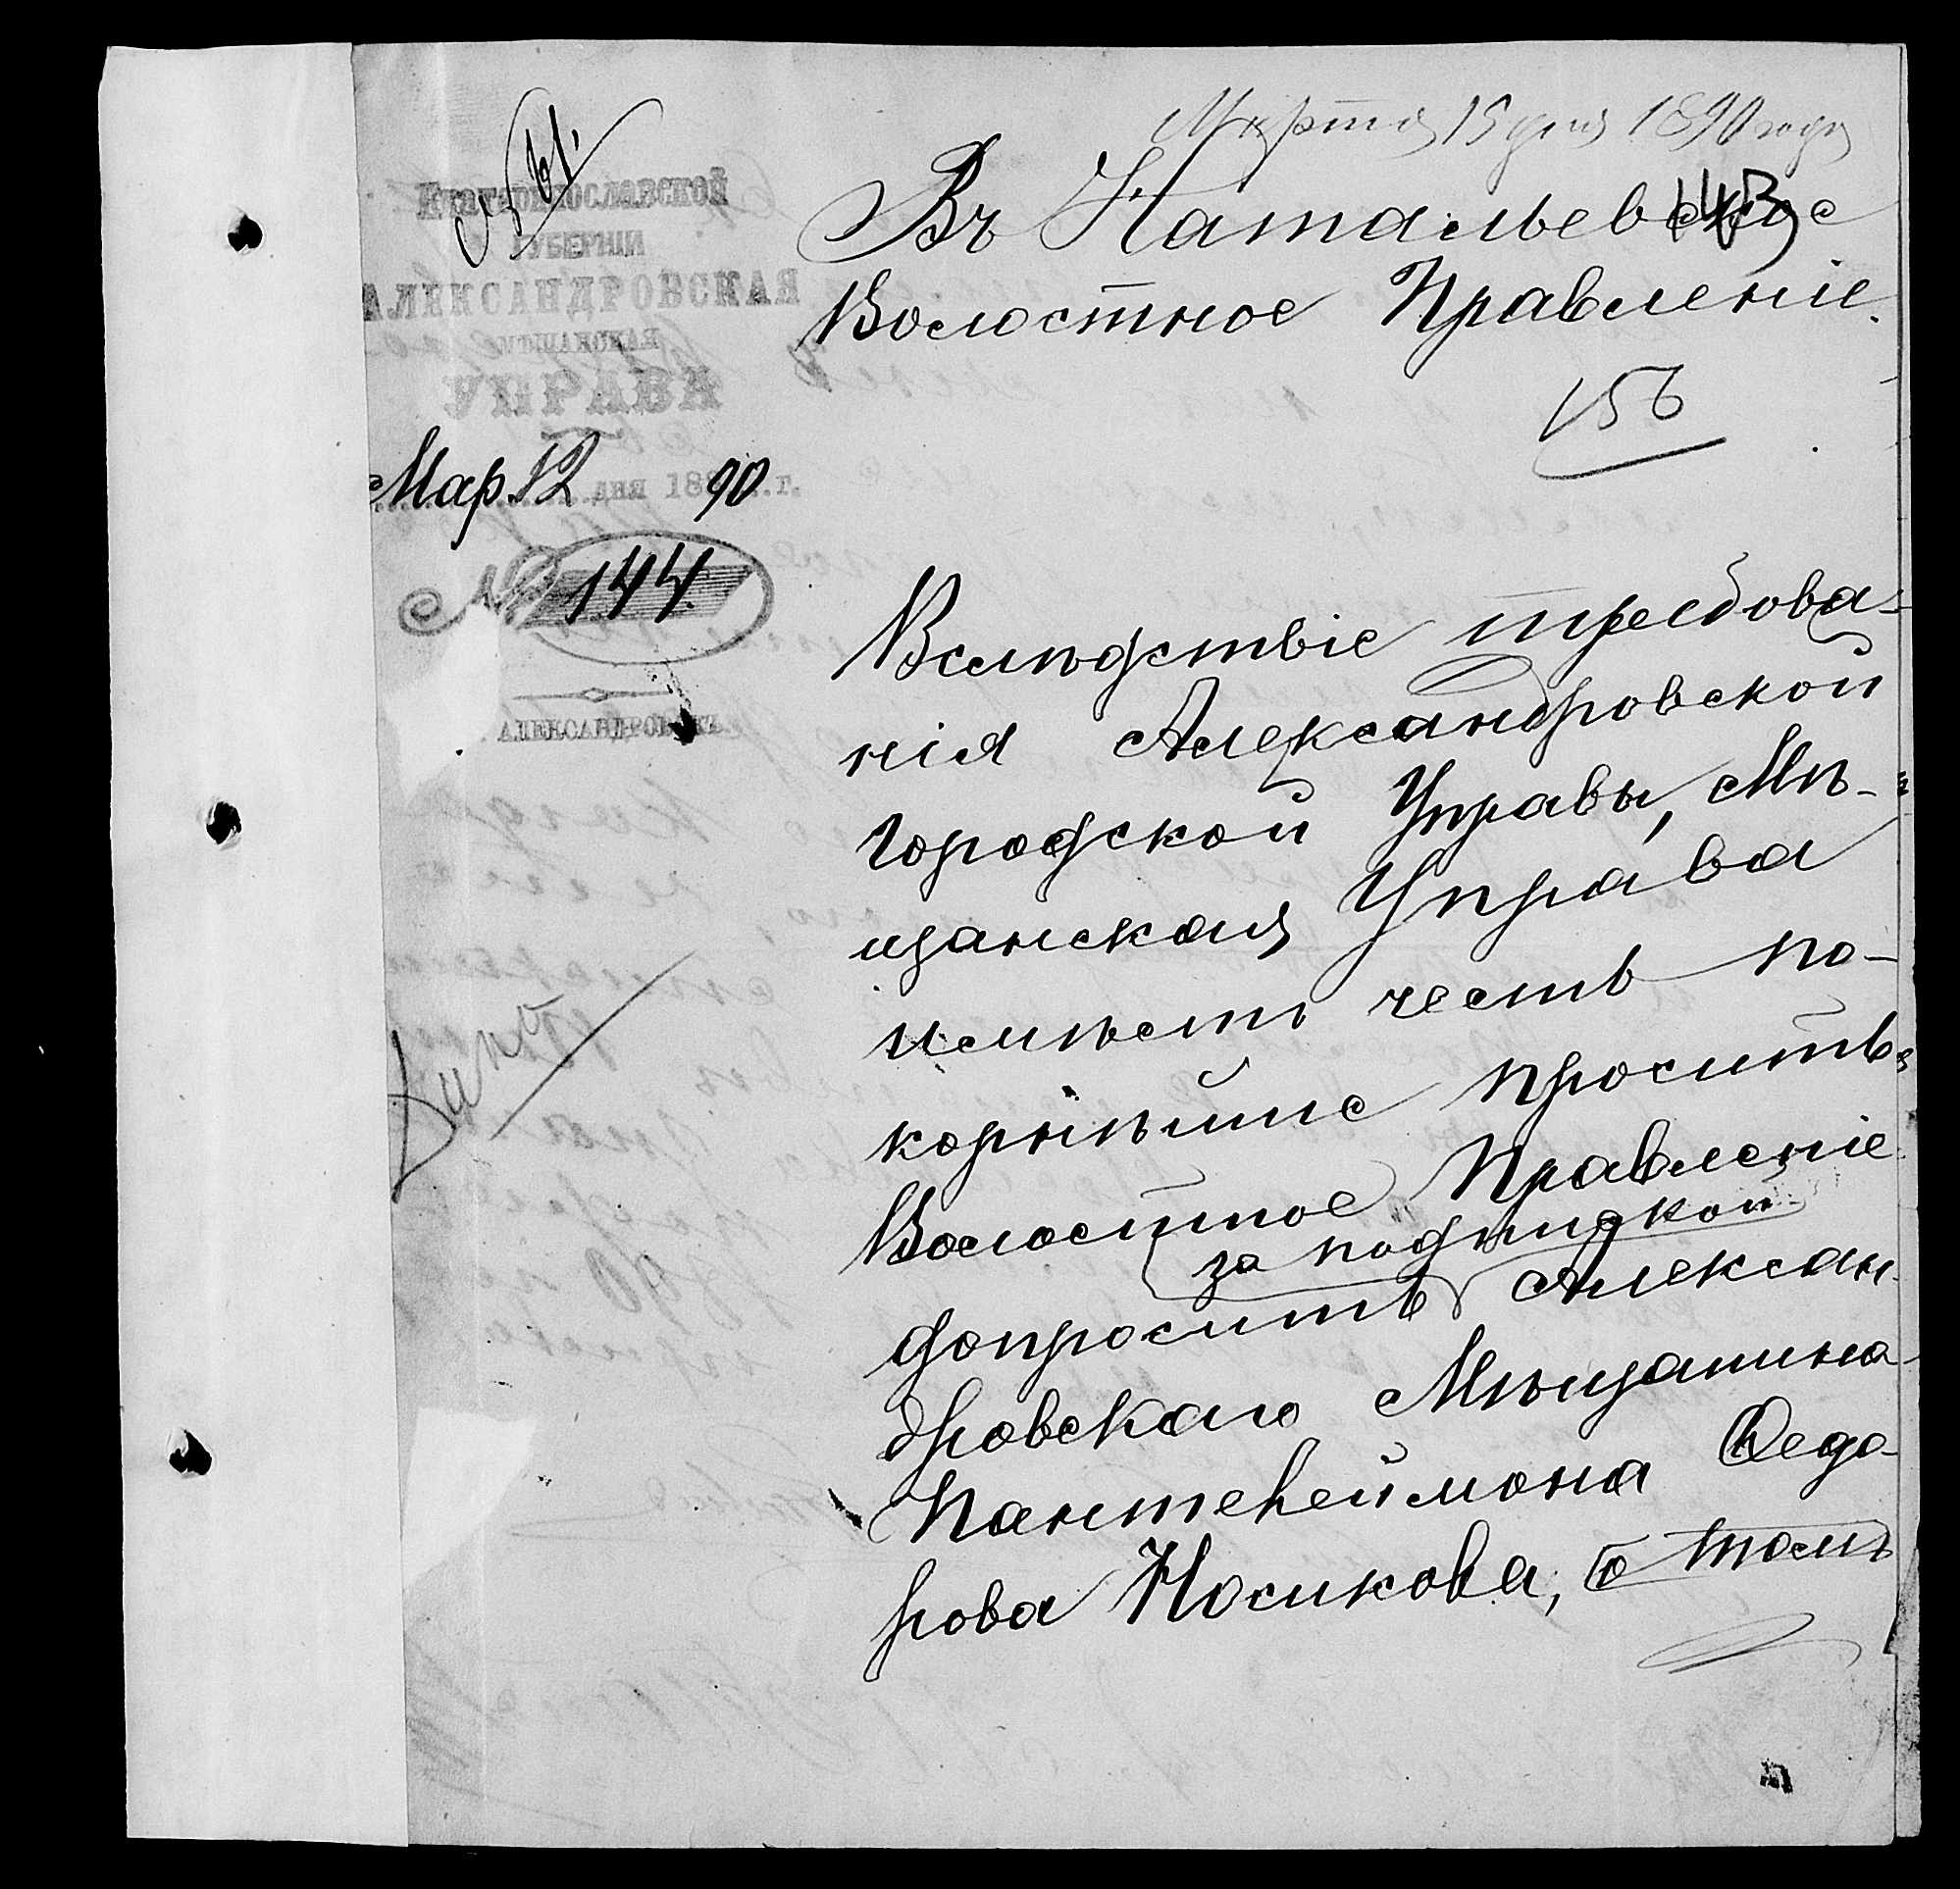 Марта 15 дня 1890 года
№ 61.
Екатеринославской
ГУБЕРНІИ
АЛЕКСАНДРОВСКАЯ
МѢЩАНСКАЯ
УПРАВА
Мар. 12 дня 188 90 г.
№ 144.
АЛЕКСАНДРОВСКЪ
143
Въ Натальевское
Волостное Правленіе.
156
Вслѣдствіе требова-
нія Александровской
Городской Управы, Мѣ-
щанская Управа
имѣетъ честь по-
корнѣйше проситъ
Волостное Правленіе
за подпиской
допроситъ Алексан-
дровскаго Мѣщанина
Пантелеймона Федо-
рова Носикова, о томъ